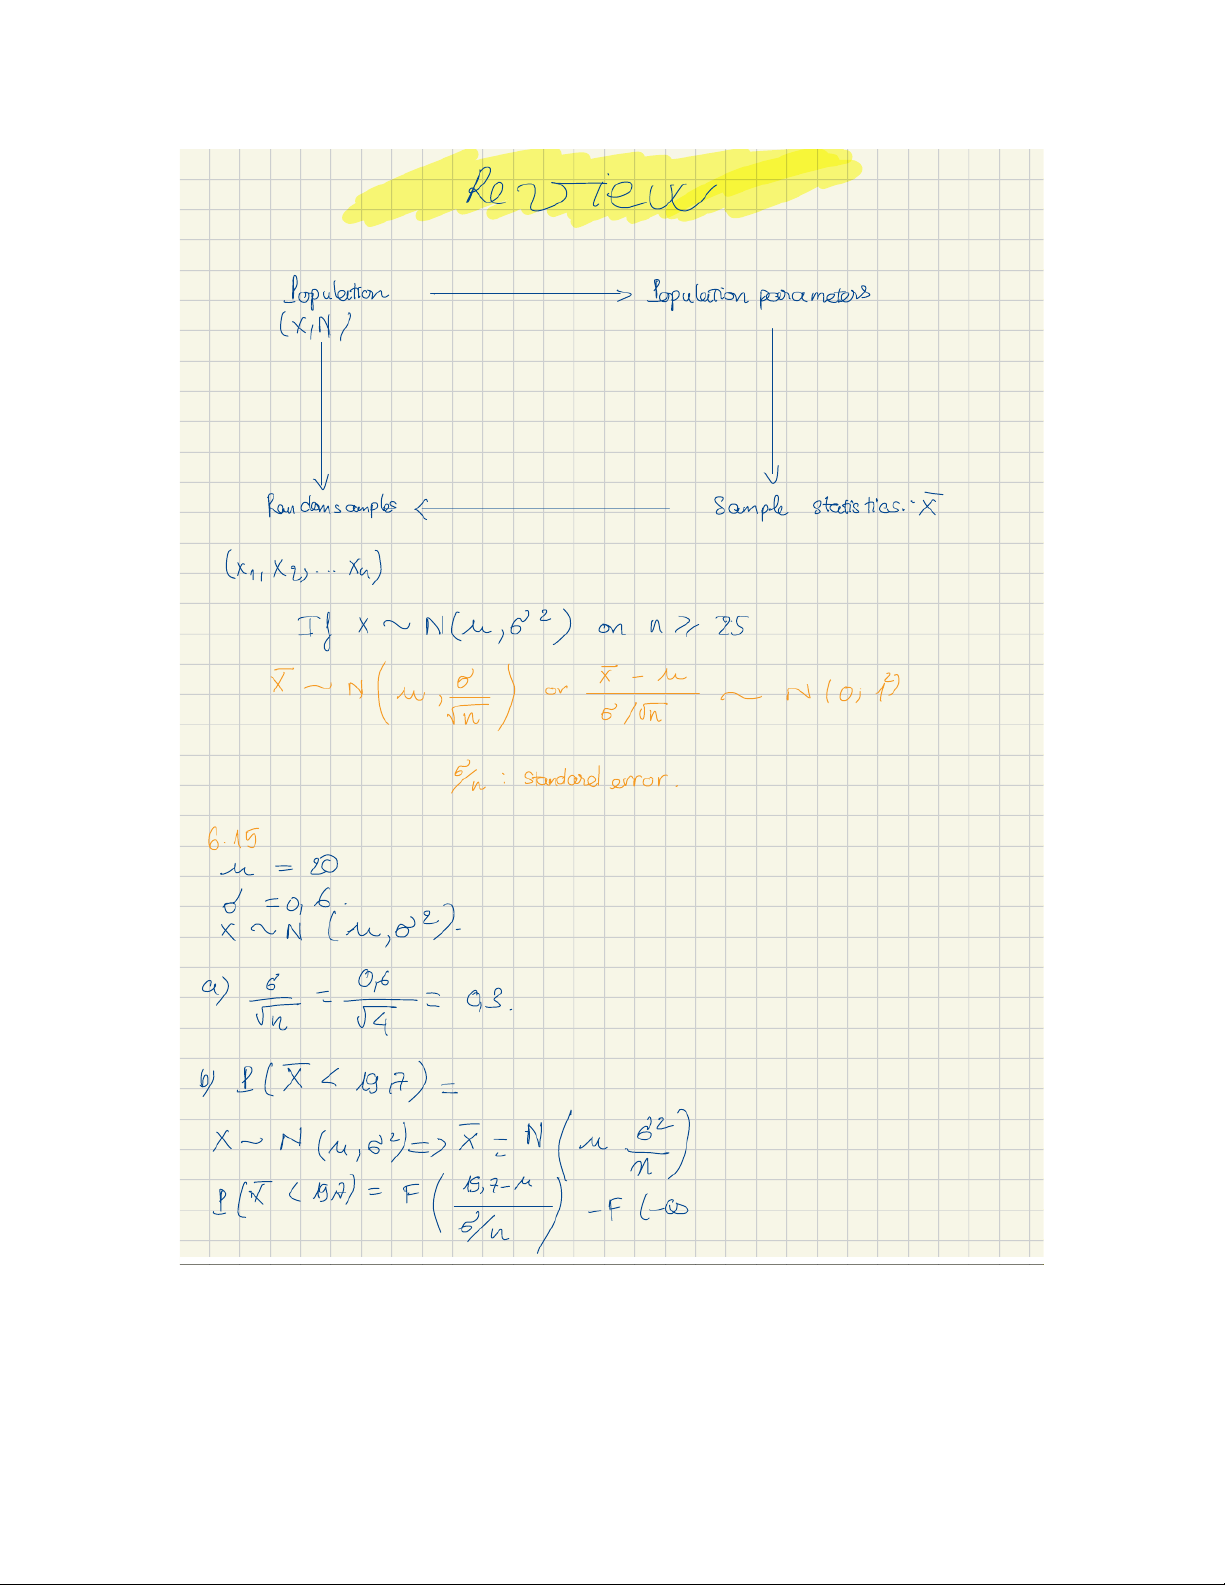 Review
Population → Population parameters
(X, N)
Random samples ← Sample statistics: X̄
(x₁, x₂, ... xₙ)
If x ~ N(μ, σ²) or n ≥ 25
X̄ ~ N(μ, σ/√n) or (X̄ - μ)/(σ/√n) ~ N(0, 1²)
σ/n : standard error.
6.15
μ = 20
σ = 0,6.
X ~ N (μ, σ²).
a) σ/√n = 0,6/√4 = 0,3.
b) P(X̄ < 19,7) =
X ~ N (μ, σ²) => X̄ = N(μ σ²/n)
P(X̄ < 19,7) = F((19,7-μ)/(σ/n)) - F(-∞